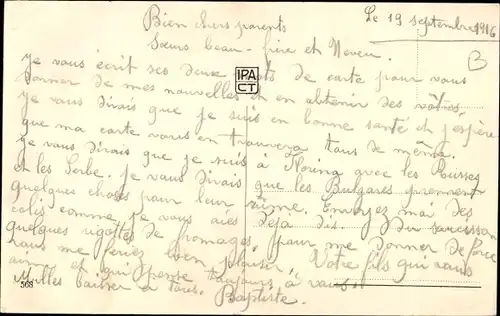 Le 19 septembre 1916
Bien chers parents
Sœurs beau-frère et Neveu.
B
je vous écrit ses deux mots de carte pour vous
donner de mes nouvelles et en obtenir des vôtres,
je vous dirais que je suis en bonne santé et j'espère
que ma carte vous en trouvera tous de même.
je vous dirais que je suis à Florina avec les Rousses
et les Serbe. je vous dirais que les Bulgares prennent
quelques choses pour leur rûme. Envoyez mai des
colis comme je vous aies déjà dis. Du saucisson
quelques rigottes de fromages, pour me donner de force
vous me feriez bien plaisir. Votre fils qui vous
aime et qui pense toujours à vous.
Milles baiser a tous. Baptiste.
IPA
CT
568